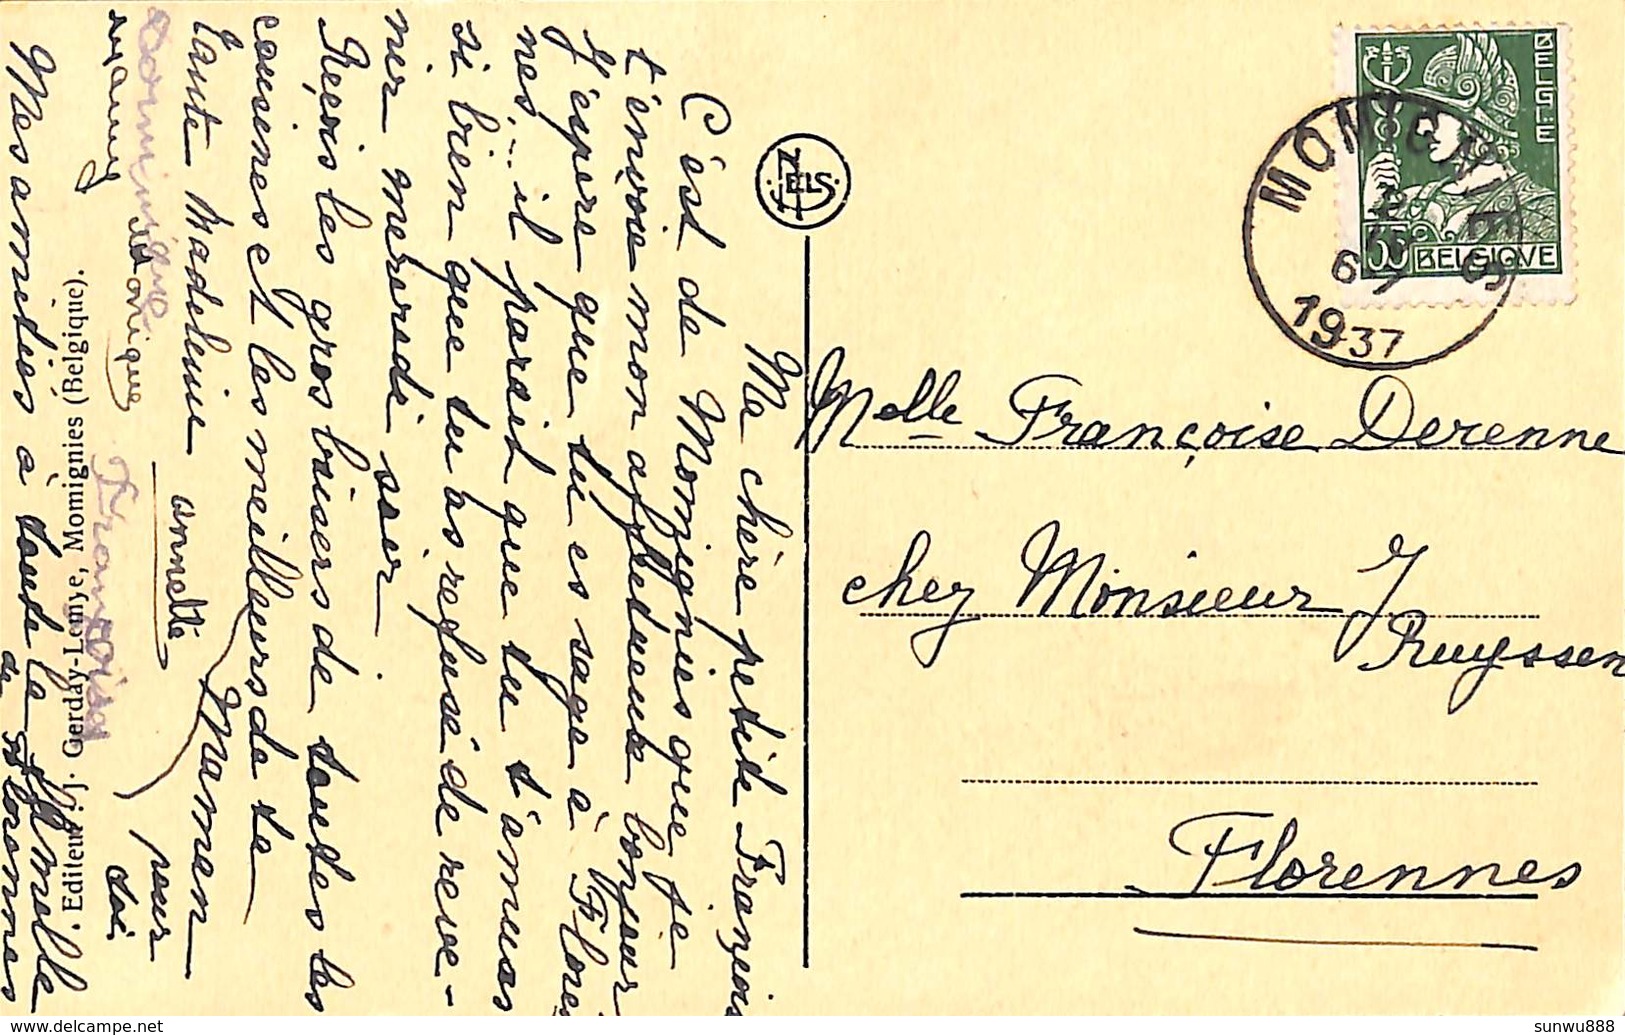 Ma chère petite Françoise
C'est de Momignies que je
t'envoie mon affectueux bonjour
J'espère que tu es sage à Floren
nes... il parait que tu t'amuses
si bien que tu as refusé de reve-
nir mercredi soir
Reçois les gros baisers de toutes les
cousines et les meilleurs de ta
tante Madeleine
annette
Maman
pour
toi
Monique
Françoise
Mes amitiés à toute la famille
de Florennes
Editeur : J. Gerday-Lemye, Momignies (Belgique).
NELS
BELGIE
BELGIQUE
35
MOMIGNIES
6-7
1937
Melle Françoise Derenne
chez Monsieur J
Ruyssen
Florennes
www.delcampe.net
sunwu888